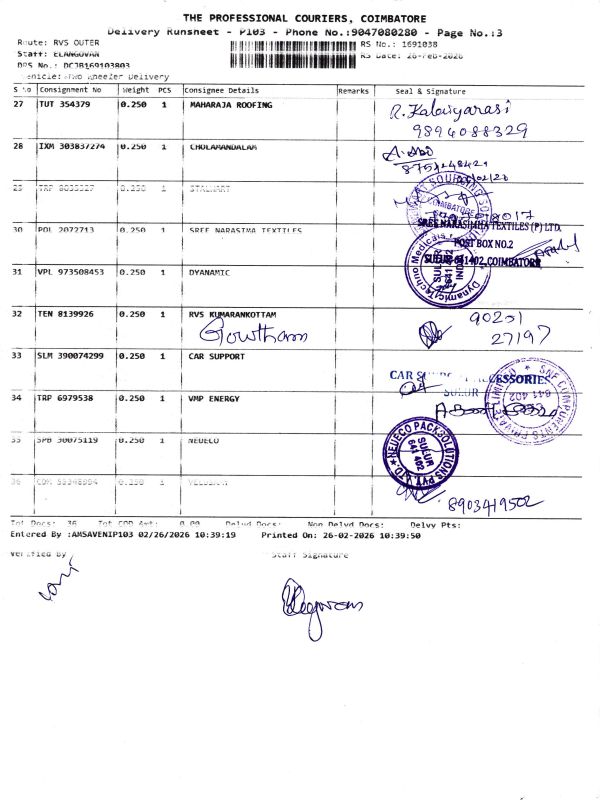 THE PROFESSIONAL COURIERS, COIMBATORE
Delivery Runsheet - P103 - Phone No.:9047080280 - Page No.:3
Route: RVS OUTER
RS No.: 1691038
Staff: ELANGOVAN
RS Date: 26-Feb-2026
DRS No.: DCJB169103803
Vehicle:Two Wheeler Delivery
S No Consignment No Weight PCS Consignee Details Remarks Seal & Signature
27 TUT 354379 0.250 1 MAHARAJA ROOFING
R. Kalaiyarasi
9894088329
28 IXM 303837274 0.250 1 CHOLAMANDALAM
29 TRP 0.250 1 STALWART
COIMBATORE
30 POL 2072713 0.250 1 SREE NARASIMA TEXTILES
SREE NARASIMHA TEXTILES (P) LTD.
POST BOX NO.2
SULUR-641402,COIMBATORE
31 VPL 973508453 0.250 1 DYANAMIC
32 TEN 8139926 0.250 1 RVS KUMARANKOTTAM
Gowtham
90251
27197
33 SLM 390074299 0.250 1 CAR SUPPORT
CAR ACCESSORIES
SULUR
SNF COMPONENTS PRIVATE LIMITED
641 402
34 TRP 6979538 0.250 1 VMP ENERGY
35 SPB 30075119 0.250 1 NEUECO
NEUECO PACKSOLUTIONS PVT. LTD
SULUR
641 402
36 0.250 1
8903419502
Tot Docs: 36 Tot COD Amt: 0.00 Delvd Docs: Non Delvd Docs: Delvy Pts:
Entered By :AMSAVENIP103 02/26/2026 10:39:19 Printed On: 26-02-2026 10:39:50
Verified By Staff Signature